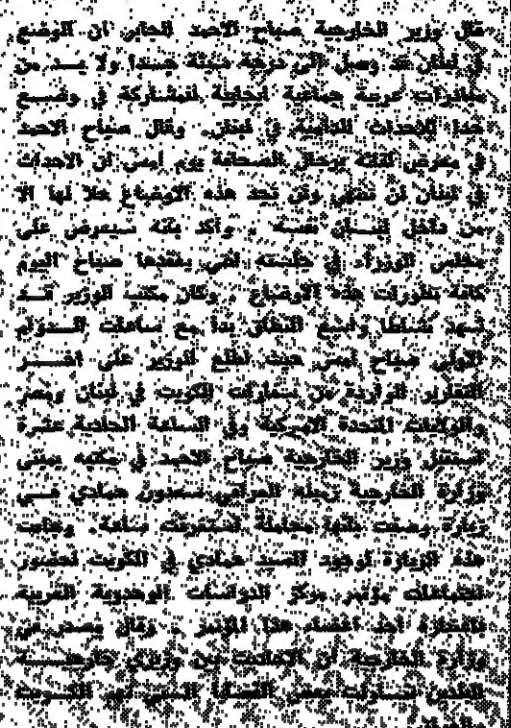 قال وزير الخارجية صباح الاحمد الجابر ان الوضع
في لبنان قد وصل الى درجة سيئة جدا ولا بد من
مبادرات عربية جماعية ايجابية للمشاركة في وضع
حد للاحداث الدامية في لبنان. وقال صباح الاحمد
في معرض لقائه برجال الصحافة يوم امس ان الاحداث
في لبنان لن تنتهي ولن تجد هذه الاوضاع حلا لها الا
من داخل لبنان نفسه . وأكد بانه سيعرض على
مجلس الوزراء في جلسته التي يعقدها صباح اليوم
كافة تطورات هذه الاوضاع . وكان مكتب الوزير قد
شهد نشاطا واسع النطاق بدأ مع ساعات الدوام
الاولى صباح امس حيث اطلع الوزير على اخر
التقارير الواردة من سفارات الكويت في لبنان ومصر
والولايات المتحدة الاميركية وفي الساعة الحادية عشرة
استقبل وزير الخارجية صباح الاحمد في مكتبه بمبنى
وزارة الخارجية زميله العراقي سعدون حمادي في
زيارة وصفت بانها مجاملة استغرقت ساعة. وجاءت
هذه الزيارة لوجود السيد حمادي في الكويت لحضور
اجتماعات مؤتمر مركز الدراسات الوحدوية العربية
باعتباره احد اعضاء هذا المؤتمر . وقال مصدر في
وزارة الخارجية ان المحادثات بين وزيري خارجية
البلدين تناولت بعض القضايا التي تهم الكويت